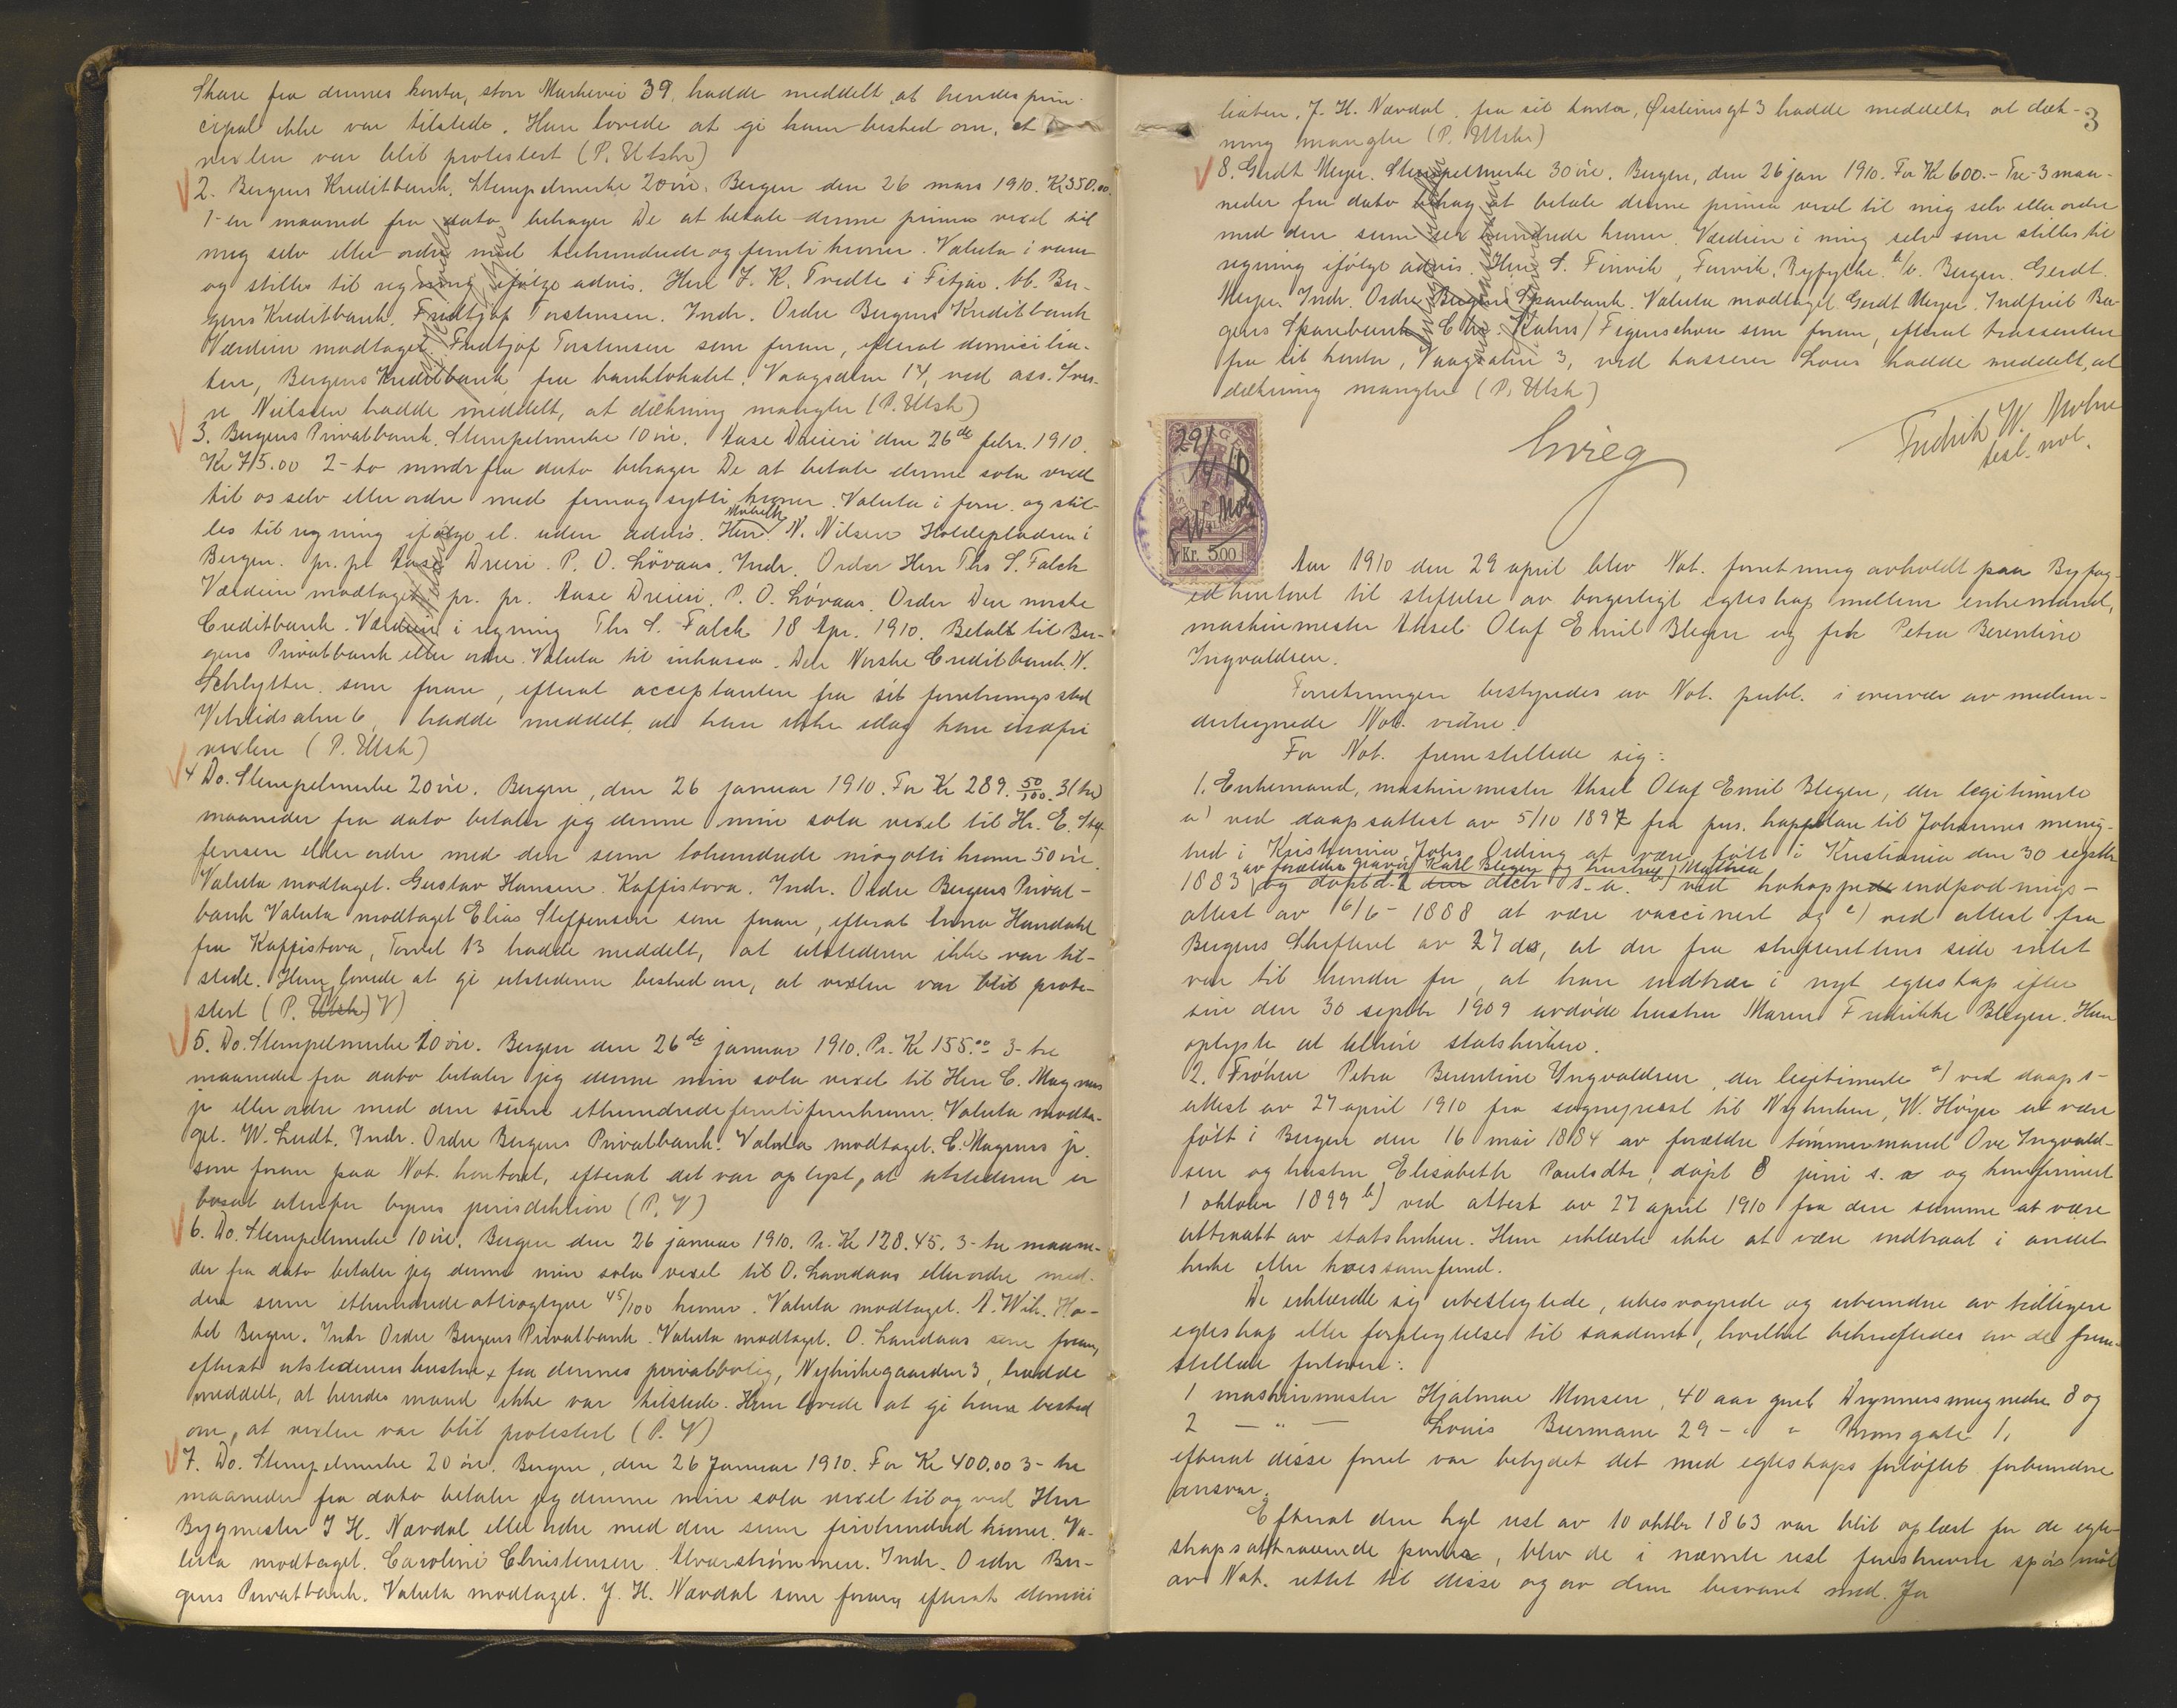 Skare fra dennes kontor, store Markevei 39, hadde meddelt, at hendes prin-
cipal ikke var tilstede. Hun lovede at gi ham besked om, at
vexlen var blit protestert (P. Utskr)
2. Bergens Kreditbank. Stempelmerke 20 øre. Bergen den 26 mars 1910. Kr 350.00.
1 - en maaned fra dato behager De at betale denne prima vexel til
mig selv eller ordre med trehundrede og femti kroner. Valuta i vare
og stilles til regning ifølge advis. Herr J. K. Tvedte i Fitjar. bb. Ber-
gens Kreditbank. Fridtjof Torstensen. Indr. Ordre Bergens Kreditbank
Værdien modtaget. Fridtjof Torstensen som foran, efterat domicilia-
ten, Bergens Kreditbank fra banklokalet, Vaagsalm 14, ved ass. Iver-
 Nielsen hadde meddelt, at dækning mangler (P. Utsk)
3. Bergens Privatbank. Stempelmerke 10 øre. Aase Dreieri den 26de febr. 1910.
Kr 75.00 2 - to mndr fra dato behager De at betale denne sola vexel
til os selv eller ordre med femog sytti kroner. Valuta i forr. og stil-
les til regning ifølge el. uden advis. Herr N. Nilsen Møbelh Holdepladsen i
Bergen. pr. pr. Aase Dreieri. P. O. Løvaas. Indr. Ordre Herr Ths S. Falck
Værdien modtaget. pr. pr. Aase Dreieri. P. O. Løvaas. Ordre Den norske
Creditbank. Værdien i regning Ths S. Falck 18 Apr. 1910. Betalt til Ber-
gens Privatbank eller ordre. Valuta til inkasso. Den Norske Creditbank. N.
Schlytter. som foran, efterat acceptanten fra sit forretningssted
Vetrlidsalm 6, hadde meddelt, at han ikke idag kan indfri
vexlen (P. Utsk)
4 Do. Stempelmerke 20 øre. Bergen, den 26 januar 1910. For Kr 289. 50/100. 3 (tre)
maaneder fra dato betaler jeg denne min sola vexel til Hr. E. Stef-
fensen eller ordre med den sum tohundrede niogotti kroner 50 øre
Valuta modtaget. Gustav Hansen. Kaffistova. Indr. Ordre Bergens Privat-
bank Valuta modtaget Elias Steffensen som foran, efterat Anna Handahl
fra Kaffistova, Torvet 13 hadde meddelt, at utstederen ikke var til-
stede. Hun lovede at gi utstederen besked om, at vexlen var blit prote-
stert (P. Utskr) V)
5. Do. Stempelmerke 10 øre. Bergen den 26de januar 1910. Pr. Kr 155.00 3 - tre
maaneder fra dato betaler jeg denne min sola vexel til Herr C. Magnus
jr eller ordre med den sum ethundrede femtifemkroner. Valuta modta-
get. W. Ludt. Indr. Ordre Bergens Privatbank. Valuta modtaget. C. Magnus jr.
som foran paa Not. kontoret, efterat det var oplyst, at utstederen er
bosat utenfor byens jurisdiktion (P. V)
6. Do. Stempelmerke 10 øre. Bergen den 26 januar 1910. Pr. Kr 128.45. 3 - tre maane-
der fra dato betaler jeg denne min sola vexel til O. Landaas eller ordre med
den sum ethundrede ottiogtyve 45/100 kroner. Valuta modtaget. A. Wik. Ho-
tel Bergen. Indr Ordre Bergens Privatbank. Valuta modtaget. O. Landaas som foran,
efterat utstederens hustru, fra dennes privatbolig, Nykirkegaarden 3, hadde
meddelt, at hendes mand ikke var tilstede. Hun lovede at gi ham besked
om, at vexlen var blit protestert (P. V)
7. Do. Stempelmerke 20 øre. Bergen, den 26 Januar 1910. For Kr 400.00 3 - tre
maaneder fra dato betaler jeg denne min sola vexel til og ved Herr
Bygmester J H. Nævdal eller ordre med den sum firehundred kroner. Va-
luta modtaget. Caroline Christensen. Alværstrømmen. Indr. Ordre Ber-
gens Privatbank. Valuta modtaget. J. H. Nævdal som foran, efterat domici
3
liaten, J. H. Nævdal. fra sit kontor, Østeinsgt 3 hadde meddelt, at dæk-
ning mangler (P. Utskr)
8. Gerdt Meyer. Stempelmerke 30 øre. Bergen, den 26 jan 1910. For Kr 600.- Tre - 3 maa-
neder fra dato behag at betale denne prima vexel til mig selv eller ordre
med den sum sex hundrede kroner. Værdien i mig selv som stilles til
regning ifølge advis. Herr S. Finvik, Finvik, Ryfylke. Bergen. Gerdt
Meyer. Indr. Ordre Bergens Sparebank. Valuta modtaget. Gerdt Meyer. Indfriet Ber-
gens Sparebank Chr. Kahrs / Figenschou som foran, efterat trassenten
fra sit kontor, Vaagsalm 3, ved kasserer Lous hadde meddelt, at
dækning mangler (P. Utsk)
Grieg
Fredrik W. Mohn
besk. not.
29/4 10
W. Moh
Kr. 5 00
Aar 1910 den 29 april blev Not. forretning avholdt paa Byfog-
edkontoret til stiftelse av borgerligt egteskap mellem enkemand,
maskinmester Aksel Olaf Emil Blegen og frk Petra Berentine
Ingvaldsen.
Forretningen bestyredes av Not. publ. i overvær av medun-
dertegnede Not. vidne.
For Not. fremstillede sig:
1. Enkemand, maskinmester Aksel Olaf Emil Blegen, der legitimerte
a) ved daapsattest av 5/10 1897 fra pers. kappellan til Johannes menig-
hed i Kristiania Johs Ording at være født i Kristiania den 30 septbr
av forældre gravør Karl Blegen og hustru Mathea
1883 og døpt d. 2 den dectr s. a. b) ved kokoppe indpodnings-
attest av 6/6 - 1888 at være vaccinert og c) ved attest fra
Bergens Skifteret av 27 ds, at der fra skifterettens side intet
var til hinder for, at han indtræder i nyt egteskap efter
sin den 30 septbr 1909 avdøde hustru Maren Fredrikke Blegen. Han
oplyste at tilhøre statskirken.
2. Frøken Petra Berentine Yngvaldsen, der legitimerte a) ved daaps-
attest av 27 april 1910 fra sogneprest til Nykirken, W. Høyer at være
født i Bergen den 16 mai 1884 av forældre tømmermand Ove Ingvald-
sen og hustru Elisabeth Paulsdtr, døpt 8 juni s. a og konfirmert
1 oktober 1899 b) ved attest av 27 april 1910 fra den samme at være
uttraadt av statskirken. Hun erklærte ikke at være indtraat i andet
kirke eller troessamfund.
De erklærte sig ubeslegtede, ubesvogrede og ubundne av tidligere
egteskap eller forpligtelse til saadant, hvilket bekræftedes av de frem-
stillede forlovere:
1 maskinmester Hjalmar Monsen, 40 aar gml Dræggersmug nedre 8 og
2 — " — Louis Biermann 29 - " " Kronsgate 1,
efterat disse forret var betydet det med egteskaps forløftet forbundne
ansvar.
Efterat den kgl resl av 10 oktbr 1863 var blit oplæst for de egte-
skapsattraaende parter, blev de i nævnte resl foreskrevne spørsmål
av Not. rettet til disse og av dem besvaret med. Ja